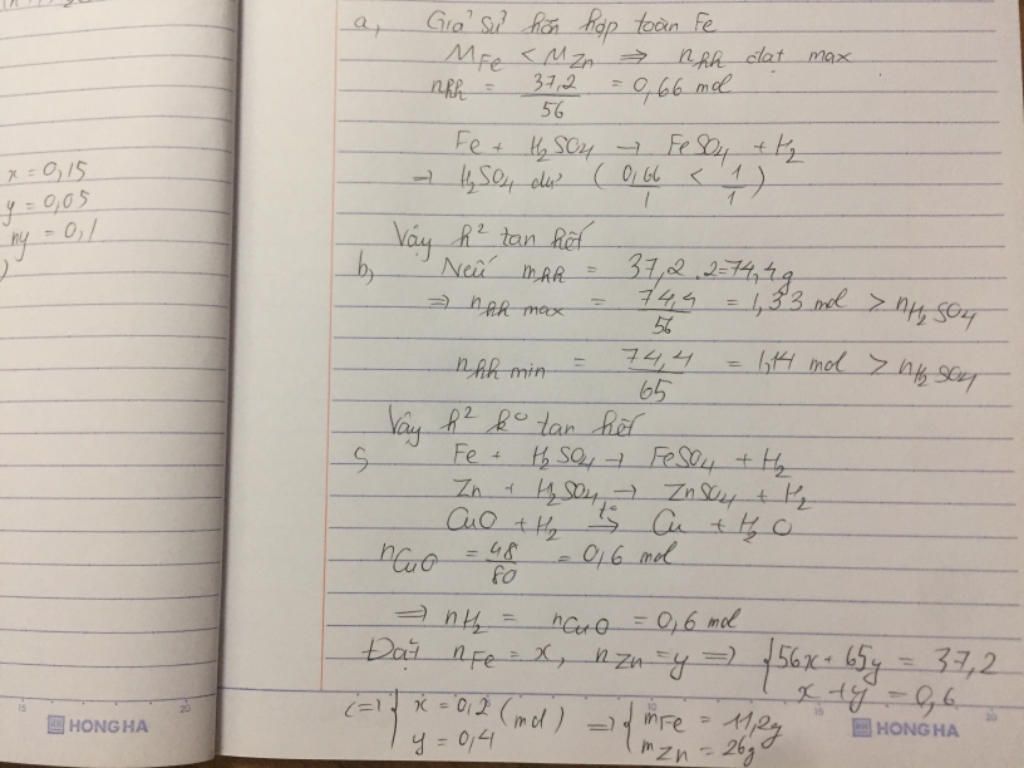 x = 0,15
y = 0,05
ny = 0,1
a, Giả sử hỗn hợp toàn Fe
M_Fe < M_Zn ⇒ n_hh đạt max
n_hh = 37,2/56 = 0,66 mol
Fe + H₂SO₄ → FeSO₄ + H₂
→ H₂SO₄ dư (0,66/1 < 1/1)
Vậy h² tan hết
b, Nếu m_hh = 37,2.2=74,4g
⇒ n_hh max = 74,4/56 = 1,33 mol > n_H₂SO₄
n_hh min = 74,4/65 = 1,14 mol > n_H₂SO₄
Vậy h² k⁰ tan hết
c, Fe + H₂SO₄ → FeSO₄ + H₂
Zn + H₂SO₄ → ZnSO₄ + H₂
CuO + H₂ →(t°) Cu + H₂O
n_CuO = 48/80 = 0,6 mol
⇒ n_H₂ = n_CuO = 0,6 mol
Đặt n_Fe = x, n_Zn = y ⇒ { 56x + 65y = 37,2
x + y = 0,6
<=> { x = 0,2 (mol) ⇒ { m_Fe = 11,2g
y = 0,4 m_Zn = 26g
15 20 10 15 20
HONG HA HONG HA